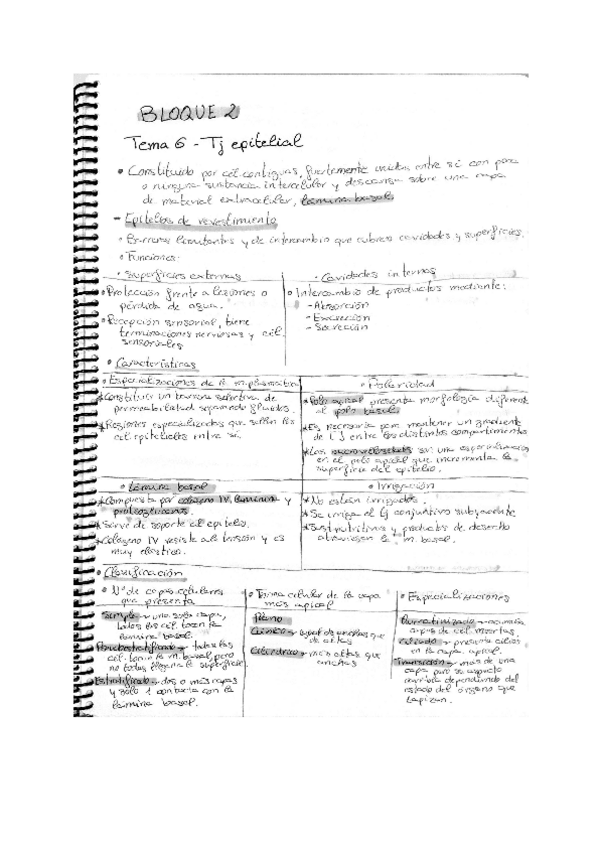 BLOQUE 2
Tema 6 - Tj epitelial
• Constituido por cél. contiguas, fuertemente unidas entre si con poca
o ninguna sustancia intercelular y descansa sobre una capa
de material extracelular, lámina basal
- Epitelios de revestimiento
• Barreras limitantes y de intercambio que cubren cavidades y superficies.
• Funciones:
• Superficies externas
• Protección frente a lesiones o
pérdida de agua.
• Recepción sensorial, tiene
terminaciones nerviosas y cél.
sensoriales
• Cavidades internas
• Intercambio de productos mediante:
- Absorción
- Excreción
- Secreción
• Características
• Especializaciones de la m. plasmática
* Constituir una barrera selectiva de
permeabilidad separando fluidos.
* Regiones especializadas que sellan las
cél. epiteliales entre sí.
• Polaridad
* Polo apical presenta morfología diferente
al polo basal
* Es necesaria para mantener un gradiente
de [ ] entre los distintos compartimentos
* Las microvellosidades son una especialización
en el polo apical que incrementa la
superficie del epitelio.
• Lámina basal
* Compuesta por colágeno IV, laminina y
proteoglucanos.
* Sirve de soporte al epitelio.
* Colágeno IV resiste a la tensión y es
muy elástico.
• Irrigación
* No están irrigados.
* Se irriga el tj conjuntivo subyacente
* Sust. nutritivas y productos de desecho
atraviesan la m. basal.
• Clasificación
• Nº de capas celulares
que presenta
Simple → una sola capa,
todas las cél. tocan la
lámina basal.
Pseudoestratificado → todas las
cél. tocan la m. basal pero
no todas llegan a la superficie
Estratificado → dos o más capas
y sólo 1 contacta con la
lámina basal.
• Forma celular de la capa
más apical
Plano
Cúbico → igual de anchas que
de altas
Cilíndrico → más altas que
anchas
• Especializaciones
Queratinizado →
capas de cél. muertas.
Ciliado → presenta cilios
en la capa apical.
Transición → más de una
capa pero su aspecto
cambia dependiendo del
estado del órgano que
tapizan.